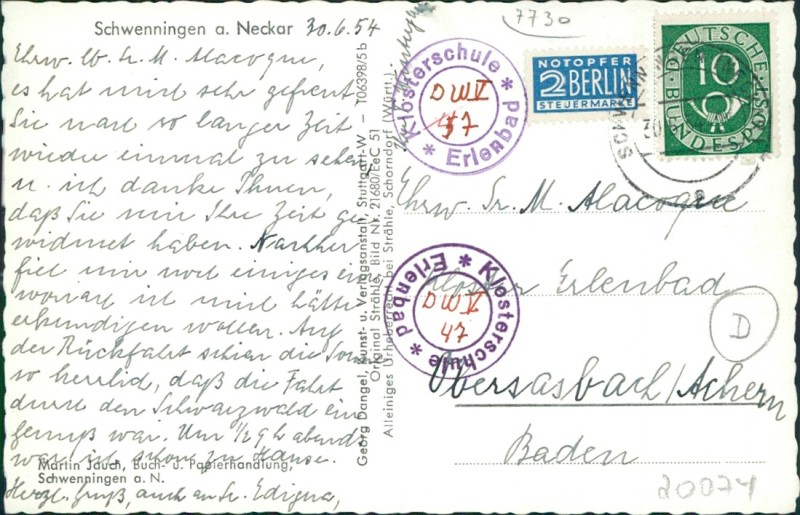 Schwenningen a. Neckar 30.6.54
Ehrw. lb. Sr. M. Alacoque,
es hat mich sehr gefreut
Sie nach so langer Zeit
wieder einmal zu sehen
u. ich danke Ihnen,
daß Sie mir Ihre Zeit ge
widmet haben. Nachher
fiel mir noch einiges ein
wonach ich mich hätte
erkundigen wollen. Auf
der Rückfahrt schien die Sonne
so herrlich, daß die Fahrt
durch den Schwarzwald ein
Genuß war. Um 1/2 9 h abend
war ich schon zu Hause.
Martin Jauch, Buch- u. Papierhandlung,
Schwenningen a. N.
Herzl. Gruß, auch an Sr. Edigna,
Georg Dangel, Kunst- u. Verlagsanstalt, Stuttgart-W — T06398/5b
Original Strähle, Bild Nr. 21680/EeC 51
Alleiniges Urheberrecht bei Strähle, Schorndorf (Württ.)
7730
Klosterschule * Erlenbad *
DWV
47
NOTOPFER
2 BERLIN
STEUERMARKE
DEUTSCHE BUNDESPOST
10
Ehrw. Sr. M. Alacoque
Kloster Erlenbad
Klosterschule * Erlenbad *
DWV
47
D
Obersasbach/Achern
Baden
20074